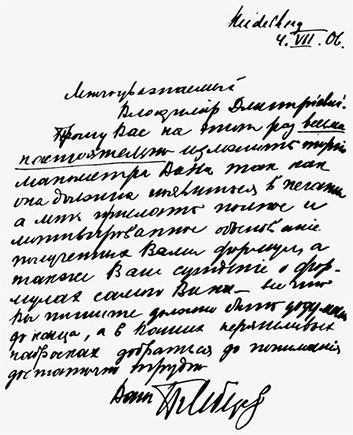 Heidelberg
4. VII. 06.
Многоуважаемый
Владимир Дмитриевич.
Прошу Вас на этот раз весьма
настоятельно изложить теорию
манометра Вана так как
она должна появиться в печати
а мне прислать полное и
мотивированное обоснование
полученных Вами формул, а
также Ваше суждение о фор-
мулах самого Вана — все что
Вы пишете должно быть додумано
до конца, а в Ваших неряшливых
набросках добраться до понимания
достаточно трудно
Ваш